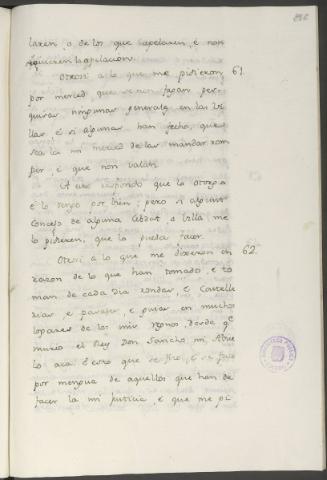 laren, o de los que apelaren, e non
requieren la apelacion.
Otrosi a lo que me pidieron 61.
por merced, que se non fagan per-
quisas ningunas generales en las vi
llas e si algunas han fecho, que
sea la mi merced de las mandar rom
per, e que non valan.
A esto respondo que lo otorgo
e lo tengo por bien; pero si algunt
Concejo de alguna Cibdat o Villa me
lo pidieren, que lo pueda facer.
Otrosi a lo que me dixeron en 62.
razon de lo que han tomado, e to
man de cada dia rondas, e Castelle
rias, e pasajes, e guias en muchos
logares de los mis regnos, desde q.e
murio el Rey Don Sancho mi Abue
lo acá: e esto que se fizo, e se face
por mengua de aquellos que han de
facer la mi justicia, e que me pi